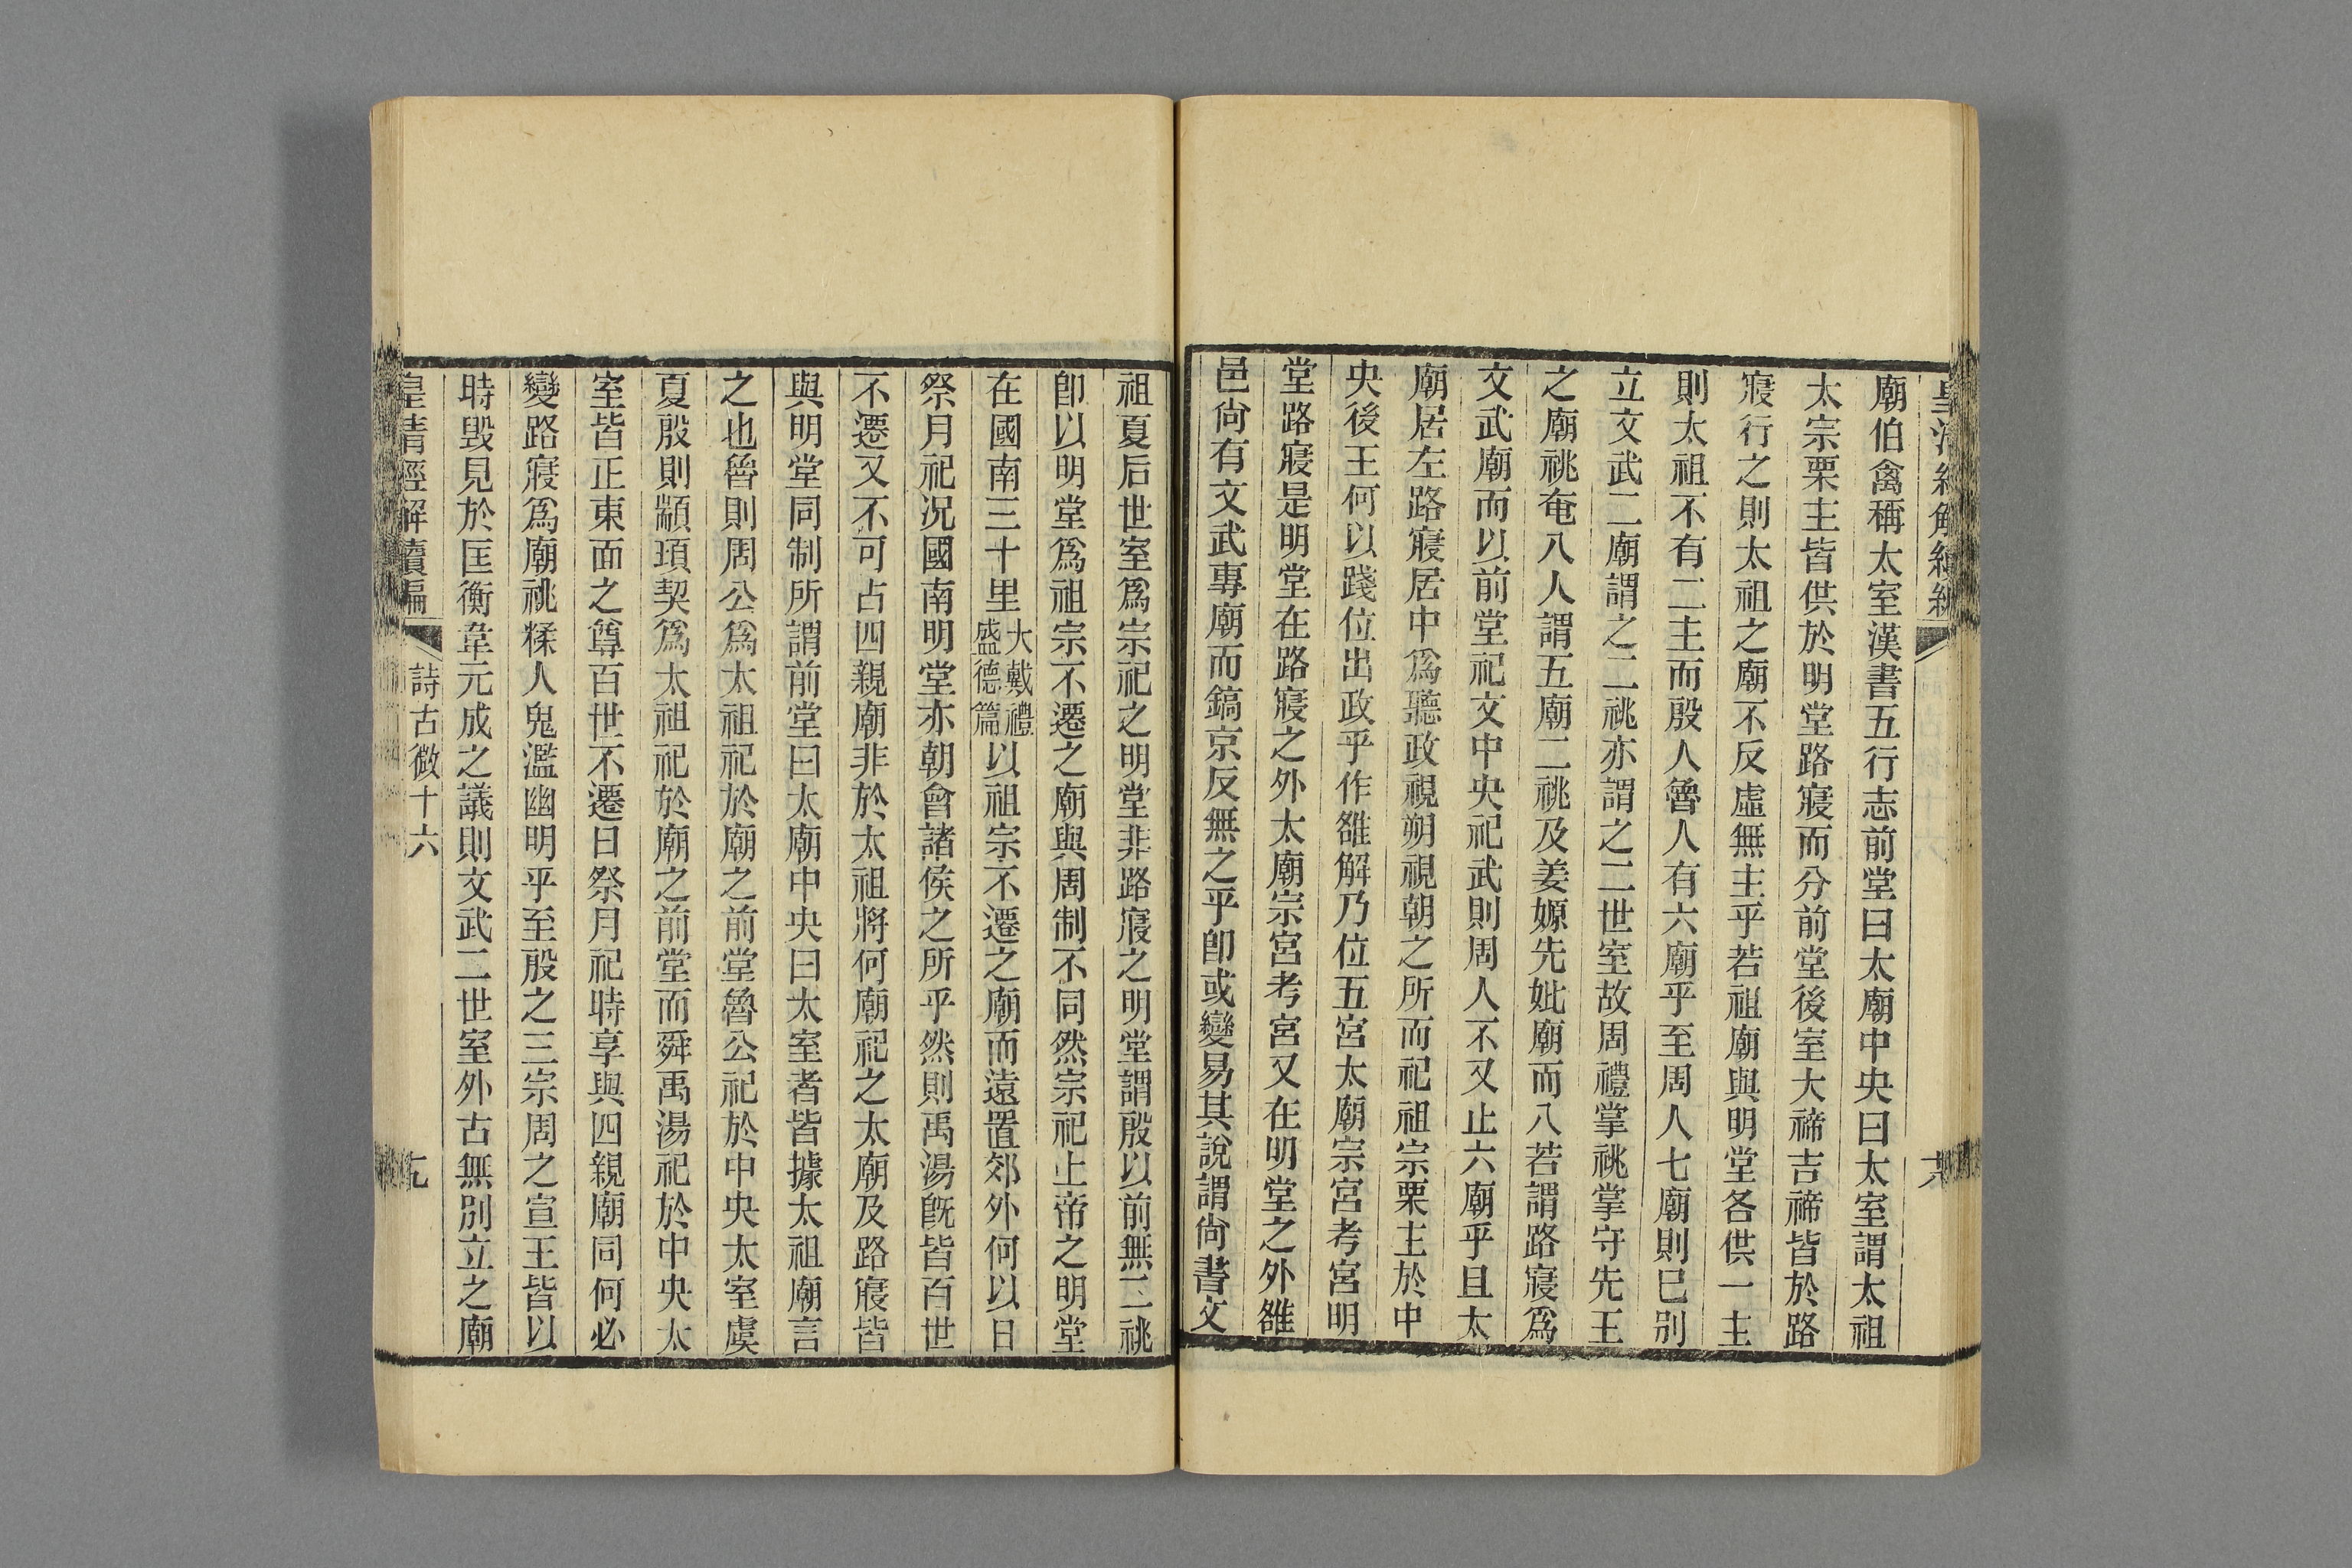 皇清經解續編
六
廟伯禽稱太室漢書五行志前堂曰太廟中央曰太室謂太祖
太宗栗主皆供於明堂路寢而分前堂後室大禘吉禘皆於路
寢行之則太祖之廟不反虛無主乎若祖廟與明堂各供一主
則太祖不有二主而殷人魯人有六廟乎至周人七廟則已別
立文武二廟謂之二祧亦謂之二世室故周禮掌祧掌守先王
之廟祧奄八人謂五廟二祧及姜嫄先妣廟而八若謂路寢爲
文武廟而以前堂祀文中央祀武則周人不又止六廟乎且太
廟居左路寢居中爲聽政視朔視朝之所而祀祖宗栗主於中
央後王何以踐位出政乎作雒解乃位五宮太廟宗宮考宮明
堂路寢是明堂在路寢之外太廟宗宮考宮又在明堂之外雒
邑尙有文武專廟而鎬京反無之乎卽或變易其說謂尙書文
祖夏后世室爲宗祀之明堂非路寢之明堂謂殷以前無二祧
卽以明堂爲祖宗不遷之廟與周制不同然宗祀上帝之明堂
在國南三十里大戴禮盛德篇以祖宗不遷之廟而遠置郊外何以日
祭月祀況國南明堂亦朝會諸侯之所乎然則禹湯旣皆百世
不遷又不可占四親廟非於太祖將何廟祀之太廟及路寢皆
與明堂同制所謂前堂曰太廟中央曰太室者皆據太祖廟言
之也魯則周公爲太祖祀於廟之前堂魯公祀於中央太室虞
夏殷則顓頊契爲太祖祀於廟之前堂而舜禹湯祀於中央太
室皆正東面之尊百世不遷日祭月祀時享與四親廟同何必
變路寢爲廟祧糅人鬼濫幽明乎至殷之三宗周之宣王皆以
時毀見於匡衡韋元成之議則文武二世室外古無別立之廟
皇清經解續編
詩古微十六